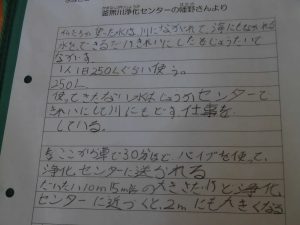 釜無川浄化センターの陣野さんより
私たちの使った水は川にながれて、海にもながれる
水をできるだけきれいにしたもじょうたいで
ながす。
1人1日250Lぐらい使う。
250L
使ってきたない水はじょうかセンターで
きれいにして川にもどす仕事を
している。
ここから車で30分ほど パイプを使って、
浄化センターに送られる
だいたい10m 15m 大きさだけど浄化
センターに近づくと、2mにも大きくなる